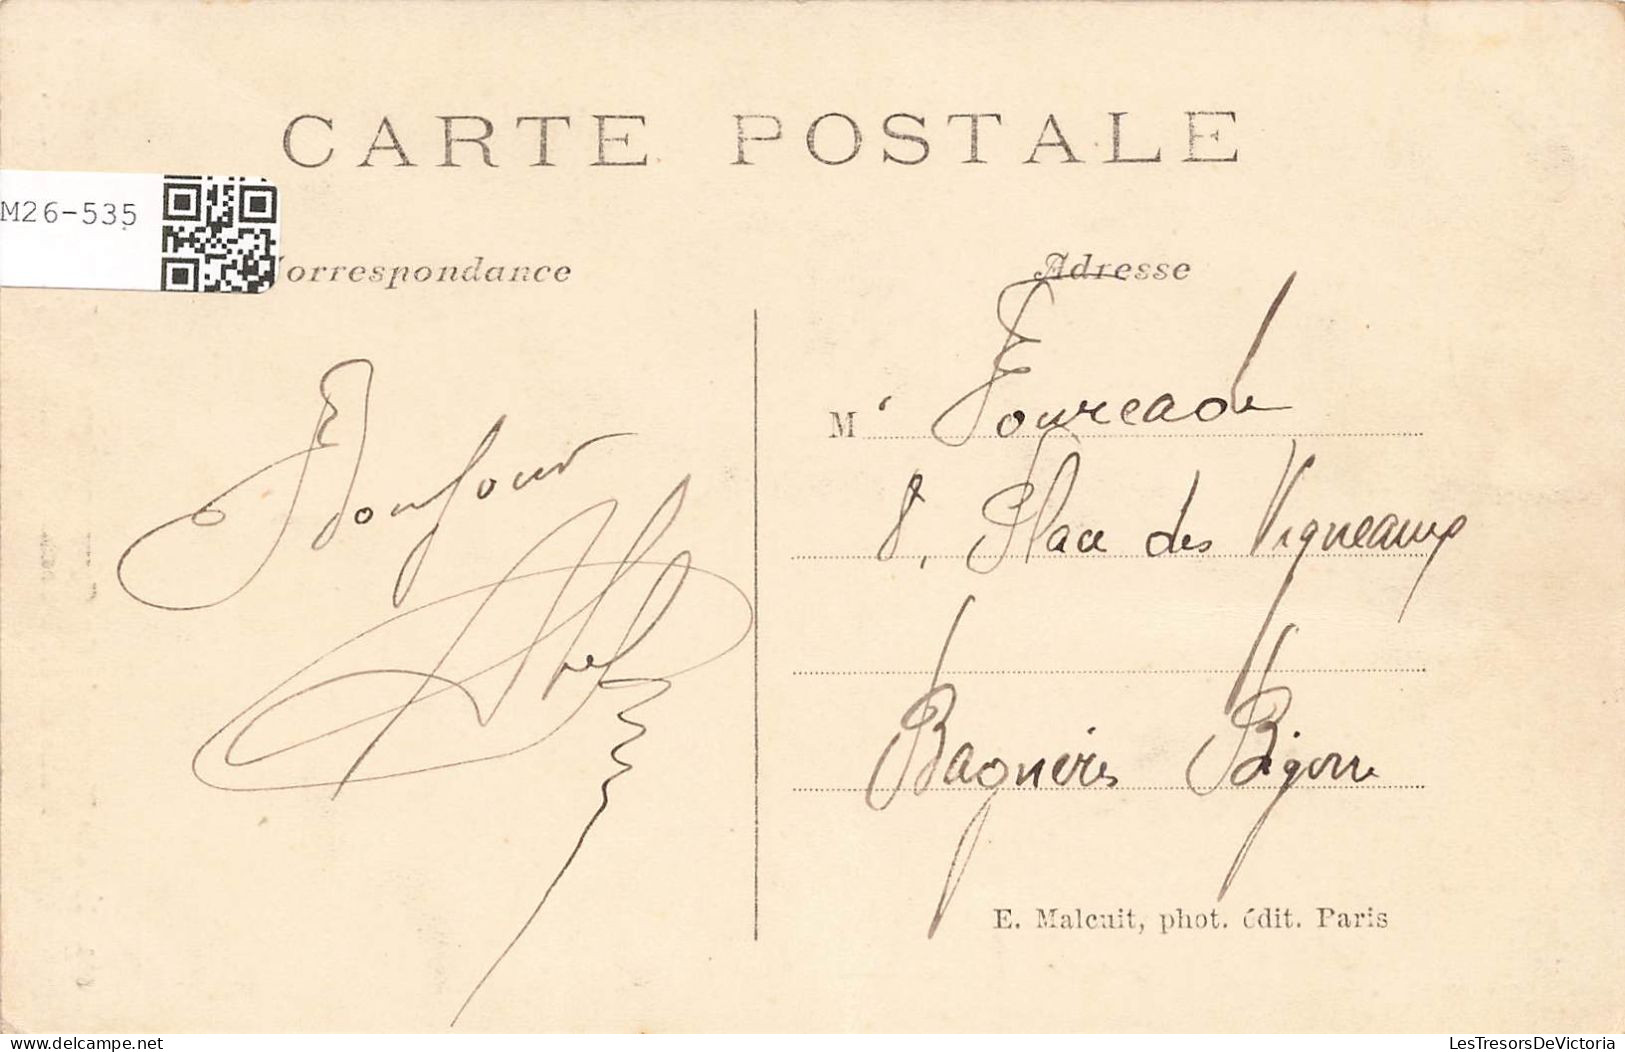 CARTE POSTALE
M26-535
orrespondance
Adresse
Bonjour
M Fourcade
8, Place des Vigneaux
Bagnères Bigorre
E. Malcuit, phot. édit. Paris
delcampe.net
LesTresorsDeVictoria